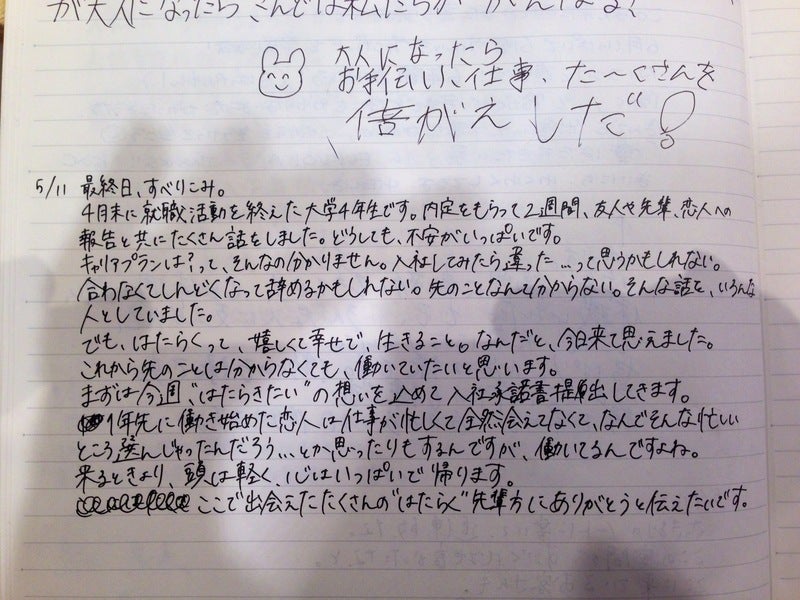 が大人になったら こんどは私たちが がんばる!
大人になったら
お手伝い、仕事、た〜くさんを
倍がえしだ!
5/11 最終日、すべりこみ。
4月末に就職活動を終えた大学4年生です。内定をもらって2週間、友人や先輩、恋人への
報告と共にたくさん話をしました。どうしても、不安がいっぱいです。
キャリアプランは?って、そんなの分かりません。入社してみたら違った...って思うかもしれない。
合わなくてしんどくなって辞めるかもしれない。先のことなんて分からない。そんな話を、いろんな
人としていました。
でも、はたらくって、嬉しくて幸せで、生きること。なんだと、今日来て思えました。
これから先のことは分からなくても、働いていたいと思います。
まずは今週"はたらきたい"の想いを込めて入社承諾書提出してきます。
1年先に働き始めた恋人は仕事が忙しくて全然会えてなくて、なんでそんな忙しい
ところ選んじゃったんだろう...とか思ったりもするんですが、働いてるんですよね。
来るときより、頭は軽く、心はいっぱいで帰ります。
ここで出会えたたくさんの"はたらく"先輩方にありがとうと伝えたいです。